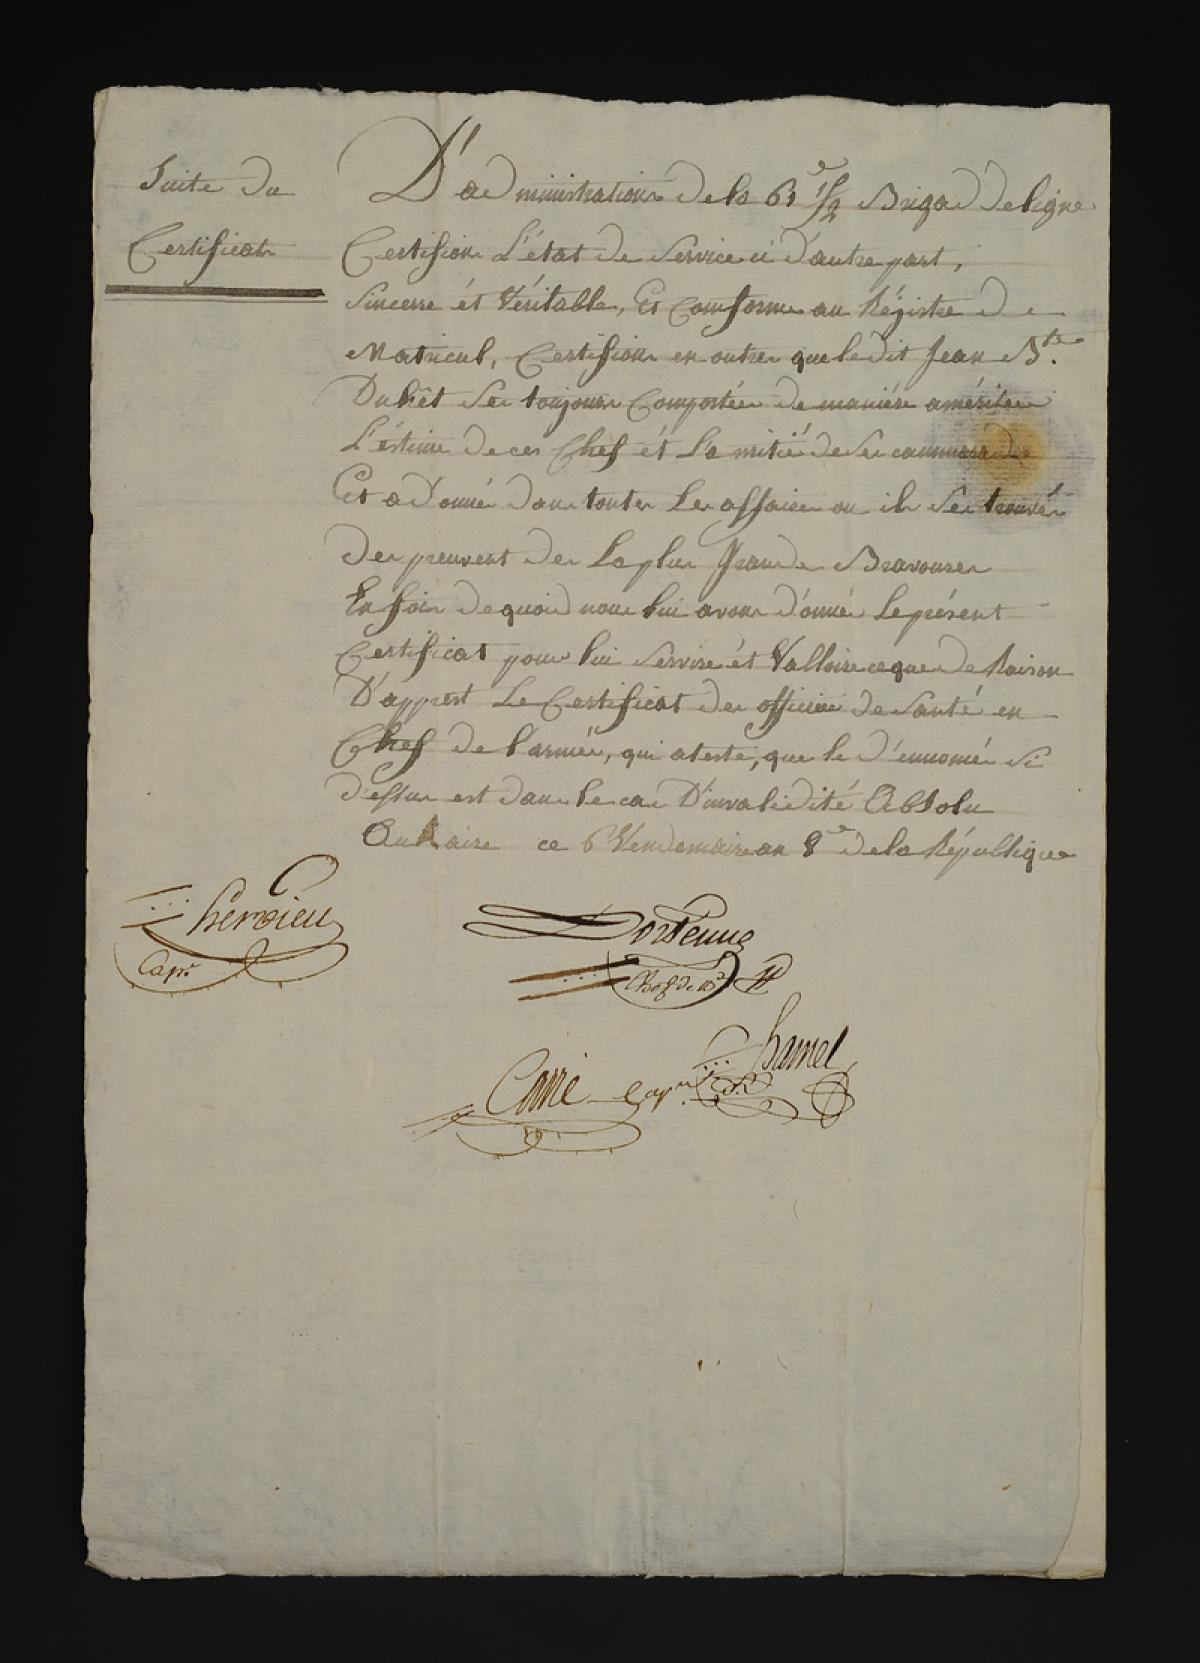 Suite du
Certificat
D'administration de la 61e 1/2 Brigad de ligne
Certifions L'état de Service ci d'autre part,
Sincerre ét Véritable, Et Comforme au Régistre de
Matricul, Certifions en outre que le dit Jean Bte.
Duhêt Ses toujours Comportéer de maniére a mériter
L'éstime de ces Chef ét L'a mitié de Ses cammarade
Et a Donné dans toutes Les affaires ou il Ses trouvér
des preuvent de La plus Grande Bravourer
En foix de quoid nous lui avons d'onnée Le présent
Certificat pour lui Servire ét Valloire ce que de Raison
D'apprest Le Certificat des officiérs de Santé en
Chef de l'armée, qui ateste, que le d'ennomée Si
d'essus est dans le cas D'invalidité Absolu
Au Kaire ce 6 Vendemaire an 8e de la République
Chervieu
Capne
Dorsenne
Chef de Bde
Carré Capne
Hamel